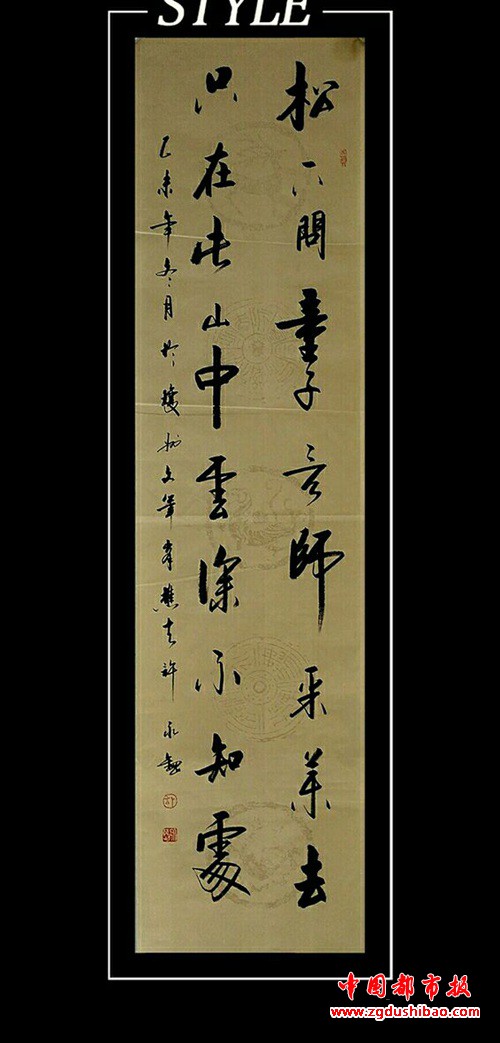 STYLE
松下問童子言師采藥去
只在此山中雲深不知處
乙未年冬月於
中国都市报
www.zgdushibao.com